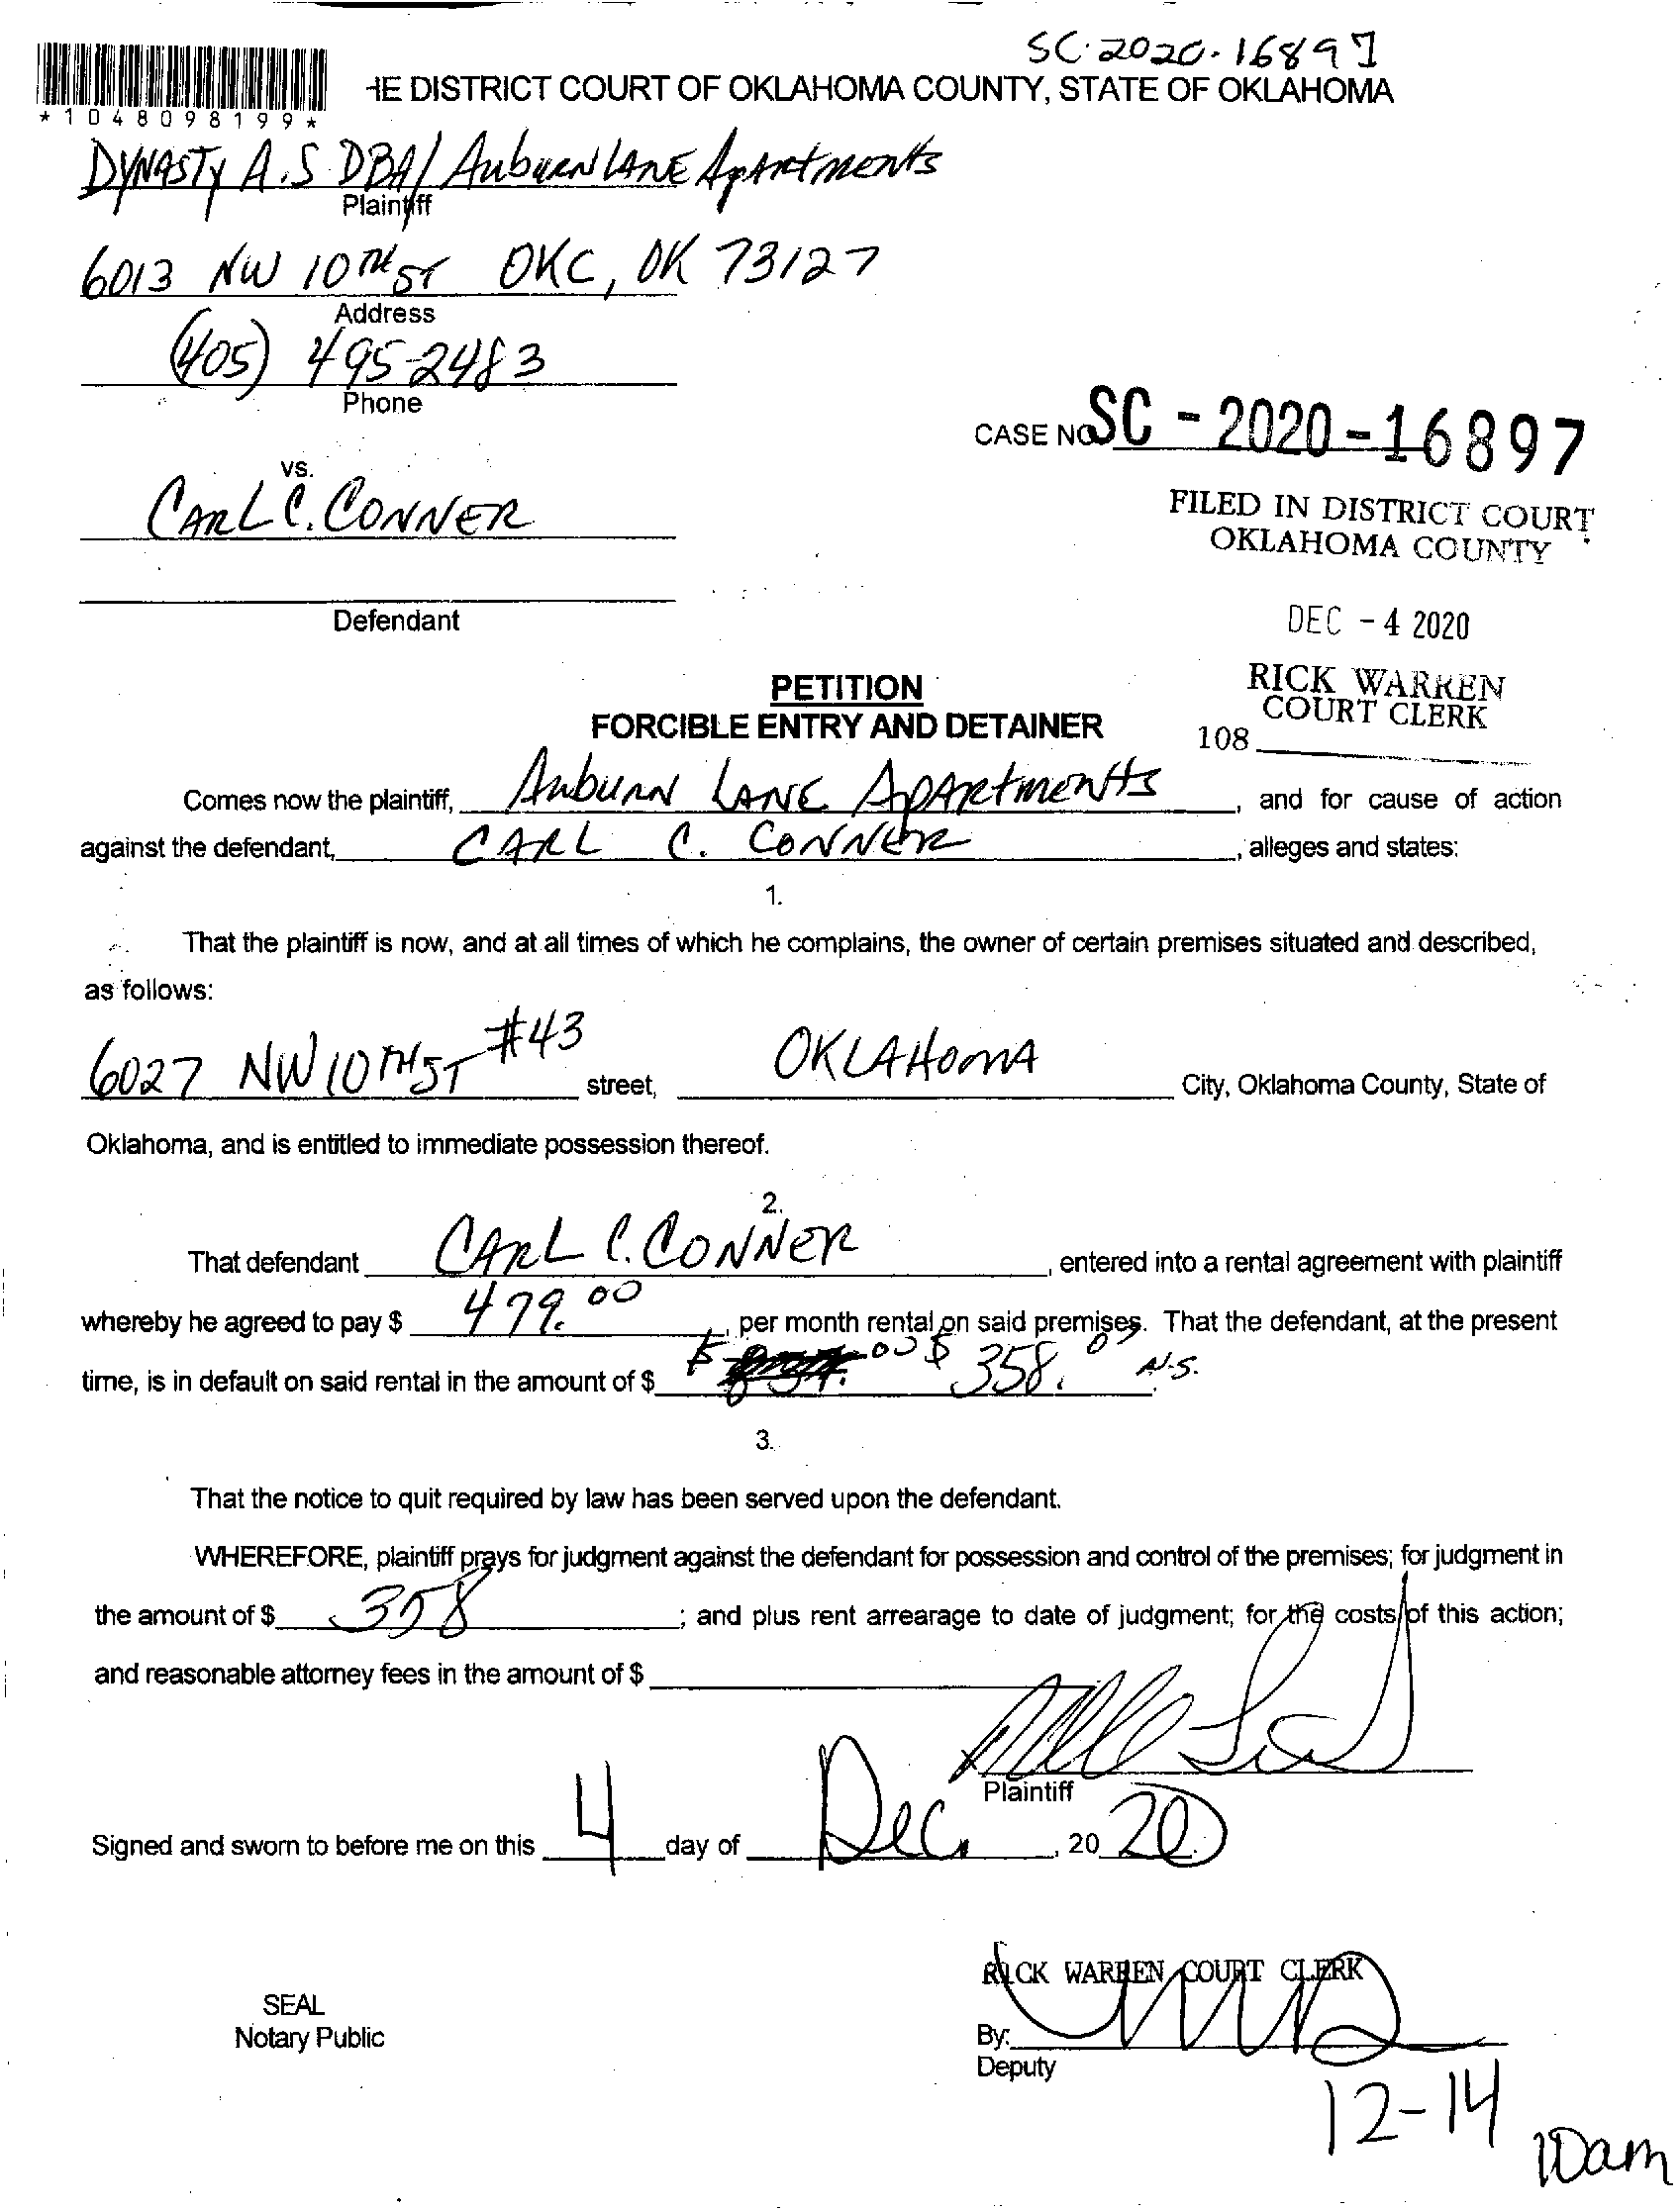 SC-2020-16897
HE DISTRICT COURT OF OKLAHOMA COUNTY, STATE OF OKLAHOMA
*1048098199*
DYNASTY A.S DBA/ AuburN LANE ApArtments
Plaintiff
6013 NW 10TH ST OKC, OK 73127
Address
(405) 495-2483
Phone
CASE NO SC - 2020 - 16897
vs.
CARL C. CONNER
FILED IN DISTRICT COURT
OKLAHOMA COUNTY
Defendant
DEC - 4 2020
PETITION
RICK WARREN
COURT CLERK
FORCIBLE ENTRY AND DETAINER
108
Comes now the plaintiff, AuburN LANE ApArtments, and for cause of action
against the defendant, CARL C. CONNER, alleges and states:
1.
That the plaintiff is now, and at all times of which he complains, the owner of certain premises situated and described,
as follows:
6027 NW 10TH ST #43 street, OKLAHOMA City, Oklahoma County, State of
Oklahoma, and is entitled to immediate possession thereof.
2.
That defendant CARL C. CONNER, entered into a rental agreement with plaintiff
whereby he agreed to pay $ 479.00, per month rental on said premises. That the defendant, at the present
time, is in default on said rental in the amount of $ $ .00 $ 358.00 N.S.
3.
That the notice to quit required by law has been served upon the defendant.
WHEREFORE, plaintiff prays for judgment against the defendant for possession and control of the premises; for judgment in
the amount of $ 358; and plus rent arrearage to date of judgment; for the costs of this action;
and reasonable attorney fees in the amount of $
Plaintiff
Signed and sworn to before me on this 4 day of Dec, 20 20
RICK WARREN COURT CLERK
SEAL
Notary Public
By:
Deputy
12-14
10am